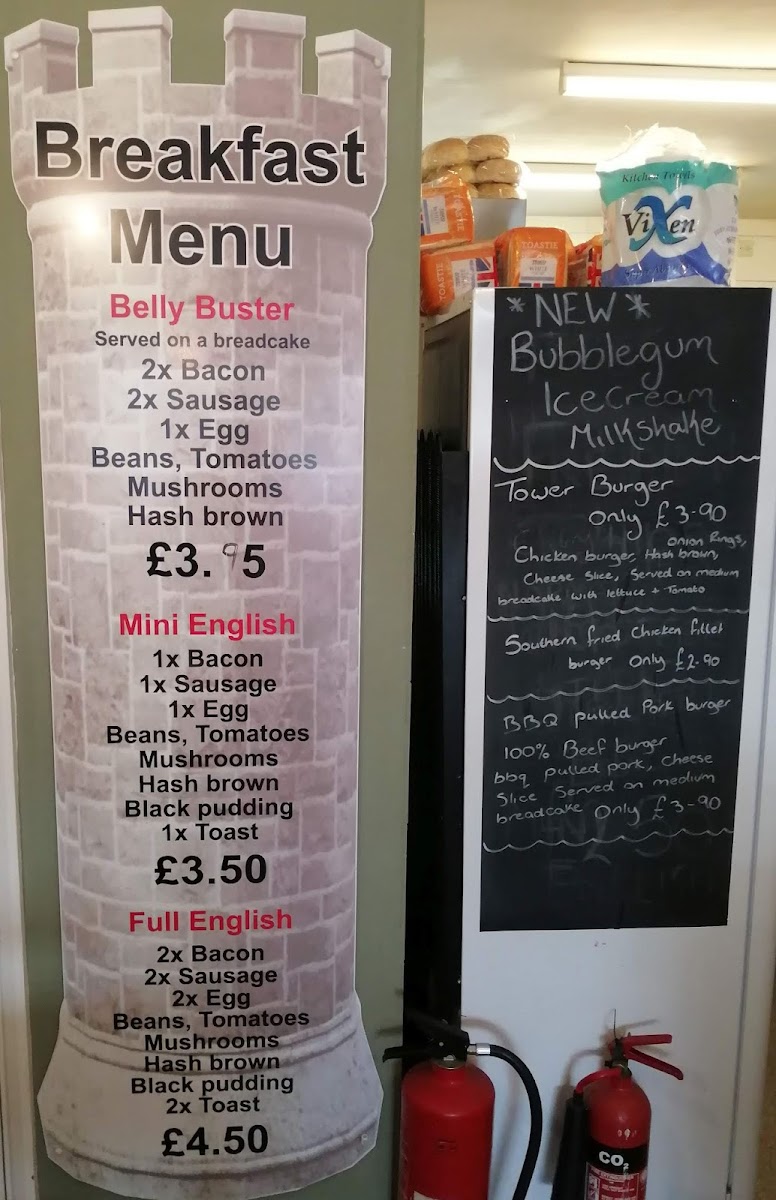 Breakfast
Menu
Belly Buster
Served on a breadcake
2x Bacon
2x Sausage
1x Egg
Beans, Tomatoes
Mushrooms
Hash brown
£3.95
Mini English
1x Bacon
1x Sausage
1x Egg
Beans, Tomatoes
Mushrooms
Hash brown
Black pudding
1x Toast
£3.50
Full English
2x Bacon
2x Sausage
2x Egg
Beans, Tomatoes
Mushrooms
Hash brown
Black pudding
2x Toast
£4.50
Kitchen Towels
Vixen
TOASTIE
TOASTIE
TOASTIE
*NEW*
Bubblegum
Icecream
Milkshake
Tower Burger
Only £3-90
Onion Rings,
Chicken burger, Hash brown,
Cheese Slice, Served on medium
breadcake with lettuce + Tomato
Southern fried Chicken fillet
burger Only £2.90
BBQ pulled Pork burger
100% Beef burger
bbq pulled pork, Cheese
Slice Served on medium
breadcake Only £3-90
CO2